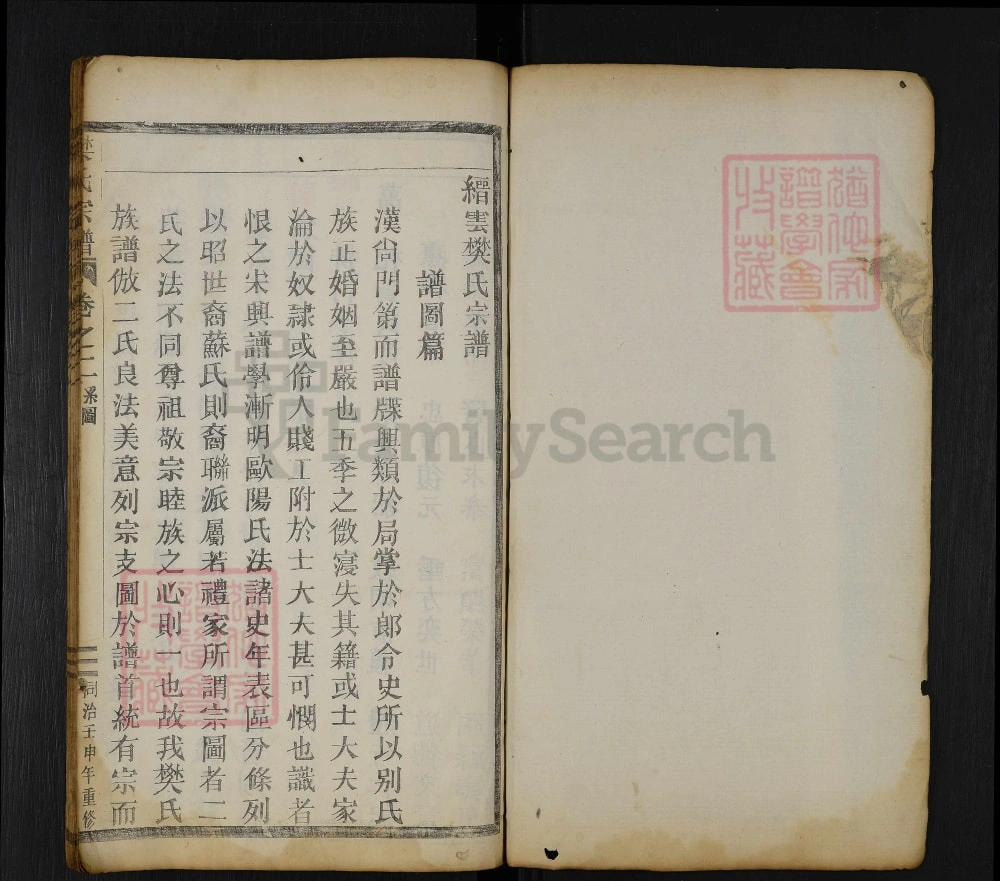 縉雲樊氏宗譜
譜圖篇
漢尙門第而譜牒興類於局掌於郎令史所以别氏
族正婚姻至嚴也五季之微寖失其籍或士大夫家
淪於奴隷或伶人賤工附於士大夫甚可憫也識者
恨之宋興譜學漸明歐陽氏法諸史年表區分條列
以昭世裔蘇氏則裔聯派屬若禮家所謂宗圖者二
氏之法不同尊祖敬宗睦族之心則一也故我樊氏
族譜倣二氏良法美意列宗支圖於譜首統有宗而
樊氏宗譜 卷之二 系圖 同治壬申年重修
猶他家譜學會收藏
猶他家譜學會收藏
FamilySearch